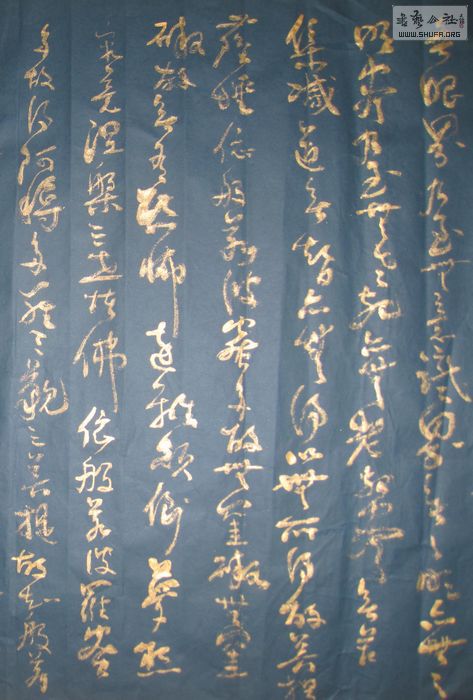 書藝公社
WWW.SHUFA.ORG
無眼界乃至無意識界無無明亦無無
明盡乃至無老死亦無老死盡無苦
集滅道無智亦無得以無所得故菩提
薩埵依般若波羅蜜多故無罣礙無罣
礙故無有恐怖遠離顛倒夢想
究竟涅槃三世諸佛依般若波羅蜜
多故得阿耨多羅三藐三菩提故知般若